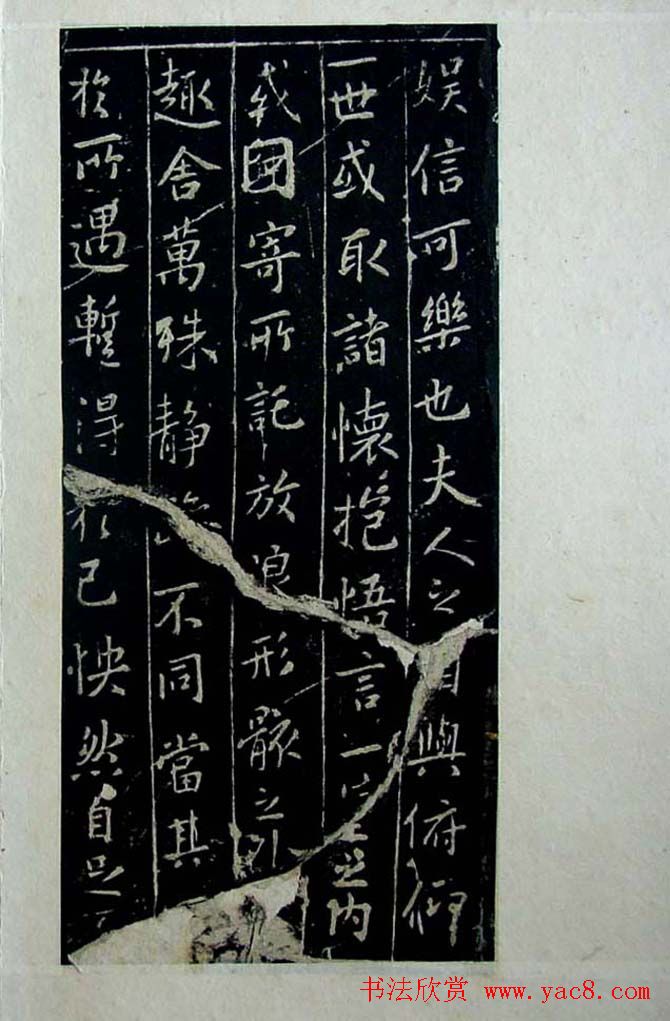 娱信可樂也夫人之相與俯仰
一世或取諸懷抱悟言一室之内
或因寄所託放浪形骸之外
趣舍萬殊静躁不同當其
於所遇蹔得於己怏然自足不
书法欣赏 www.yac8.com